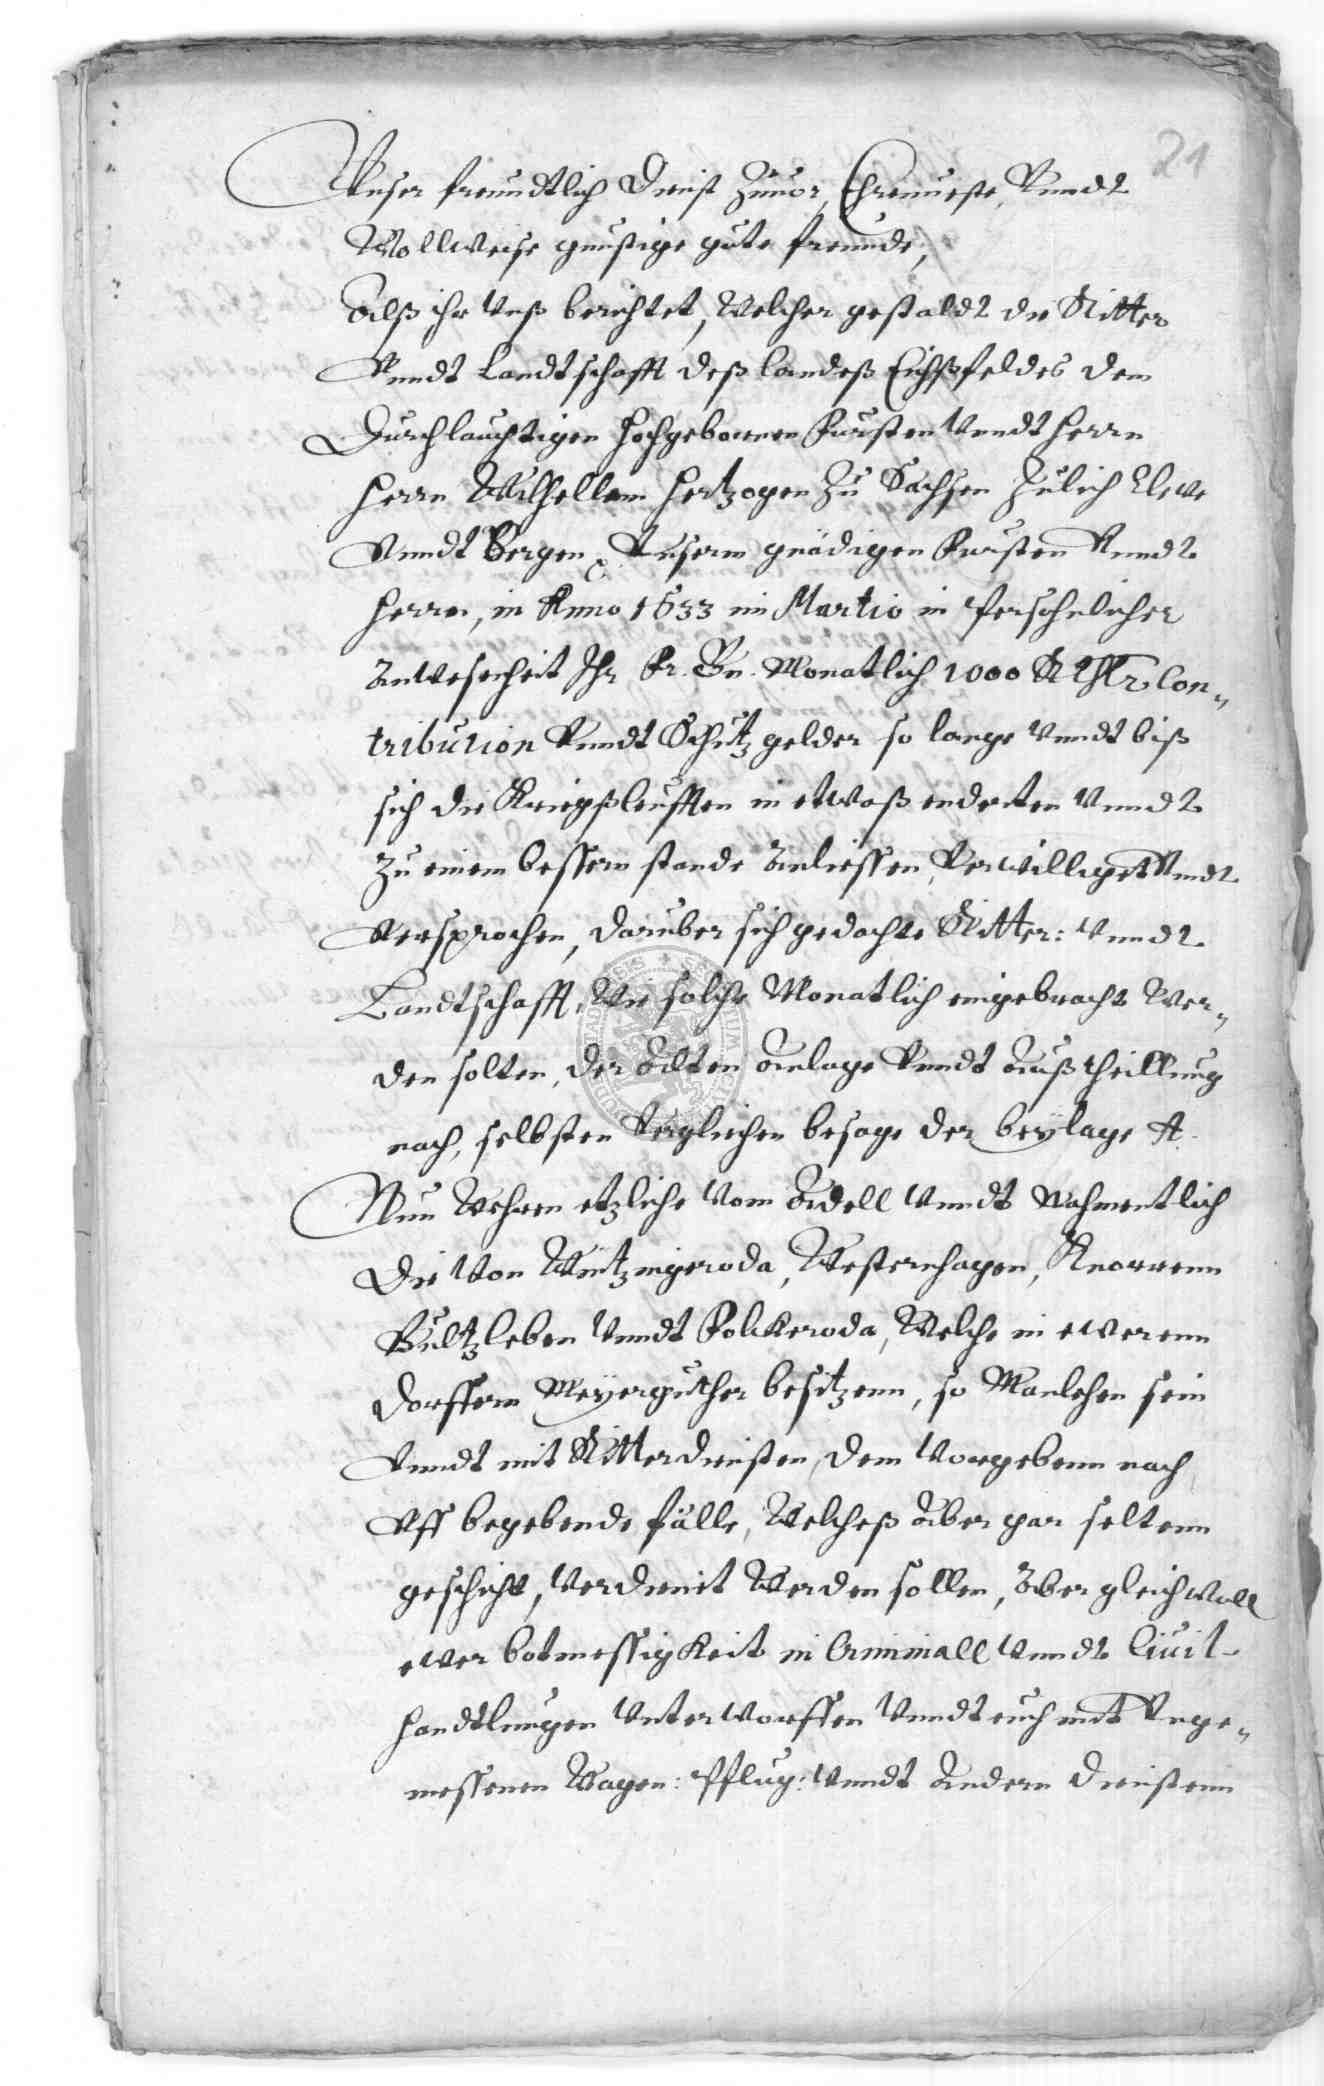 21
Vnser freundtlich Dienst Zuuor, Ehrnueste, Vnndt
Wollweise gunstige gute freunde,
Alß ihr Vnß berichtet, Welcher gestaldt die Ritter
Vnndt Landtschafft deß landeß Eichßfeldes dem
Durchlauchtigen Hochgebornen Fursten Vnndt Herrn
Herrn Wilhellem Hertzogen Zu Sachsen Julich Cleve
Vnndt Bergen, Vnserm gnädigen Fursten Vnndt
Herrn, in Anno 1633 im Martio in Persohnlicher
Anwesenheit Ihr Fr. Gn. Monatlich 1000 Rthlr Con-
tribution Vnndt Schutzgelder so lange Vnndt biß
sich die Kriegßleufften in etwaß enderten Vnndt
Zu einem bessern stande Anliessen, Verwilliget Vnndt
Versprochen, daruber sich gedachte Ritter: Vnndt
Landtschafft, Wie solche Monatlich eingebracht Wer-
den solten, der Alten Anlage Vnndt Außtheillung
nach, selbsten Verglichen besage der beylage A.
Nun Wehren etzliche Vom Adell Vnndt Nahmentlich
Die Von Wintzingeroda, Westernhagen, Knorrenn
Bultzleben Vnndt Volkeroda, Welche in ewerenn
Dorffern Meyerguther besitzenn, so Manlehen sein
Vnndt mit Ritterdiensten, dem Vorgebenn nach,
Vff begebende fälle, Welcheß Aber gar seltenn
geschicht, Verdienet Werden sollen, Aber gleichwoll
ewer botmessigkeit in Criminall Vnndt Ciuil-
handtlungen Vnterworffen Vnndt euch mit Vnge-
messenen Wagen: Pflug: Vnndt Andern Dienstenn